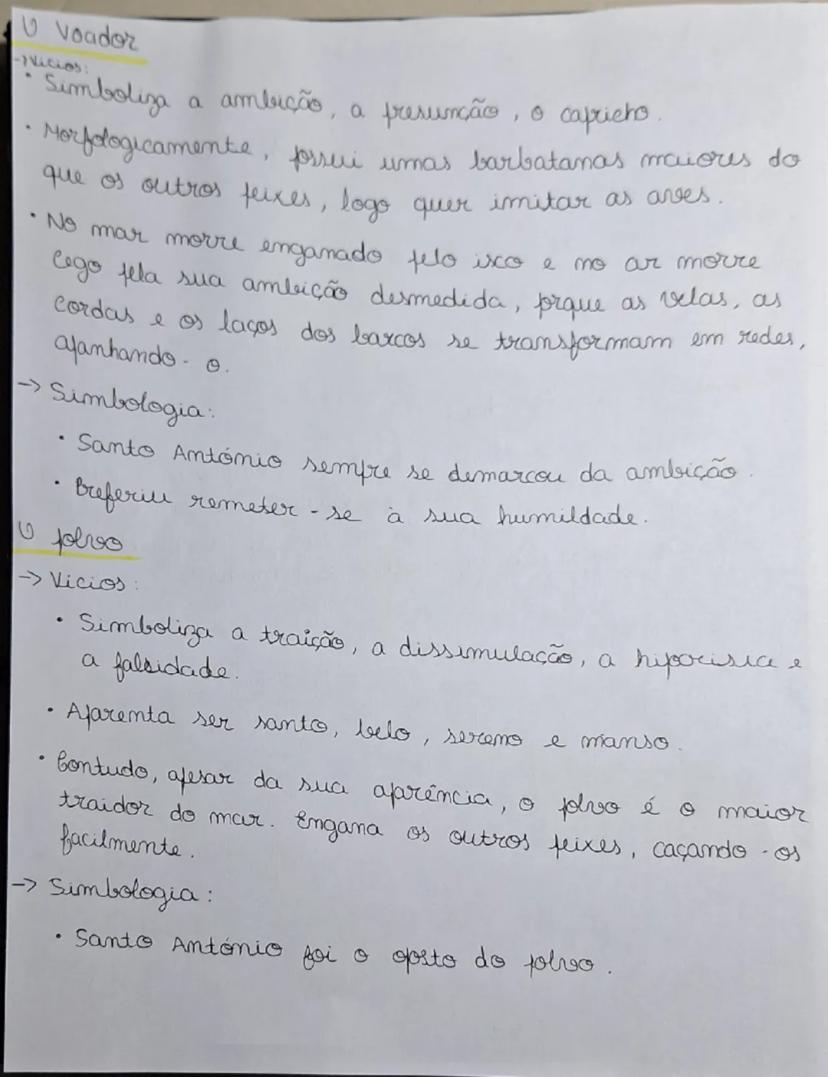 O Voador
→ Vicios:
• Simboliza a ambição, a presunção, o capricho.
• Morfologicamente, possui umas barbatanas maiores do
que os outros peixes, logo quer imitar as aves.
• No mar morre enganado pelo isco e no ar morre
cego pela sua ambição desmedida, porque as velas, as
cordas e os laços dos barcos se transformam em redes,
apanhando-o.
→ Simbologia:
• Santo António sempre se demarcou da ambição.
• Preferiu remeter-se à sua humildade.
O polvo
→ Vicios:
• Simboliza a traição, a dissimulação, a hipocrisia e
a falsidade.
• Aparenta ser santo, belo, sereno e manso.
• Contudo, apesar da sua aparência, o polvo é o maior
traidor do mar. Engana os outros peixes, caçando-os
facilmente.
→ Simbologia:
• Santo António foi o oposto do polvo.